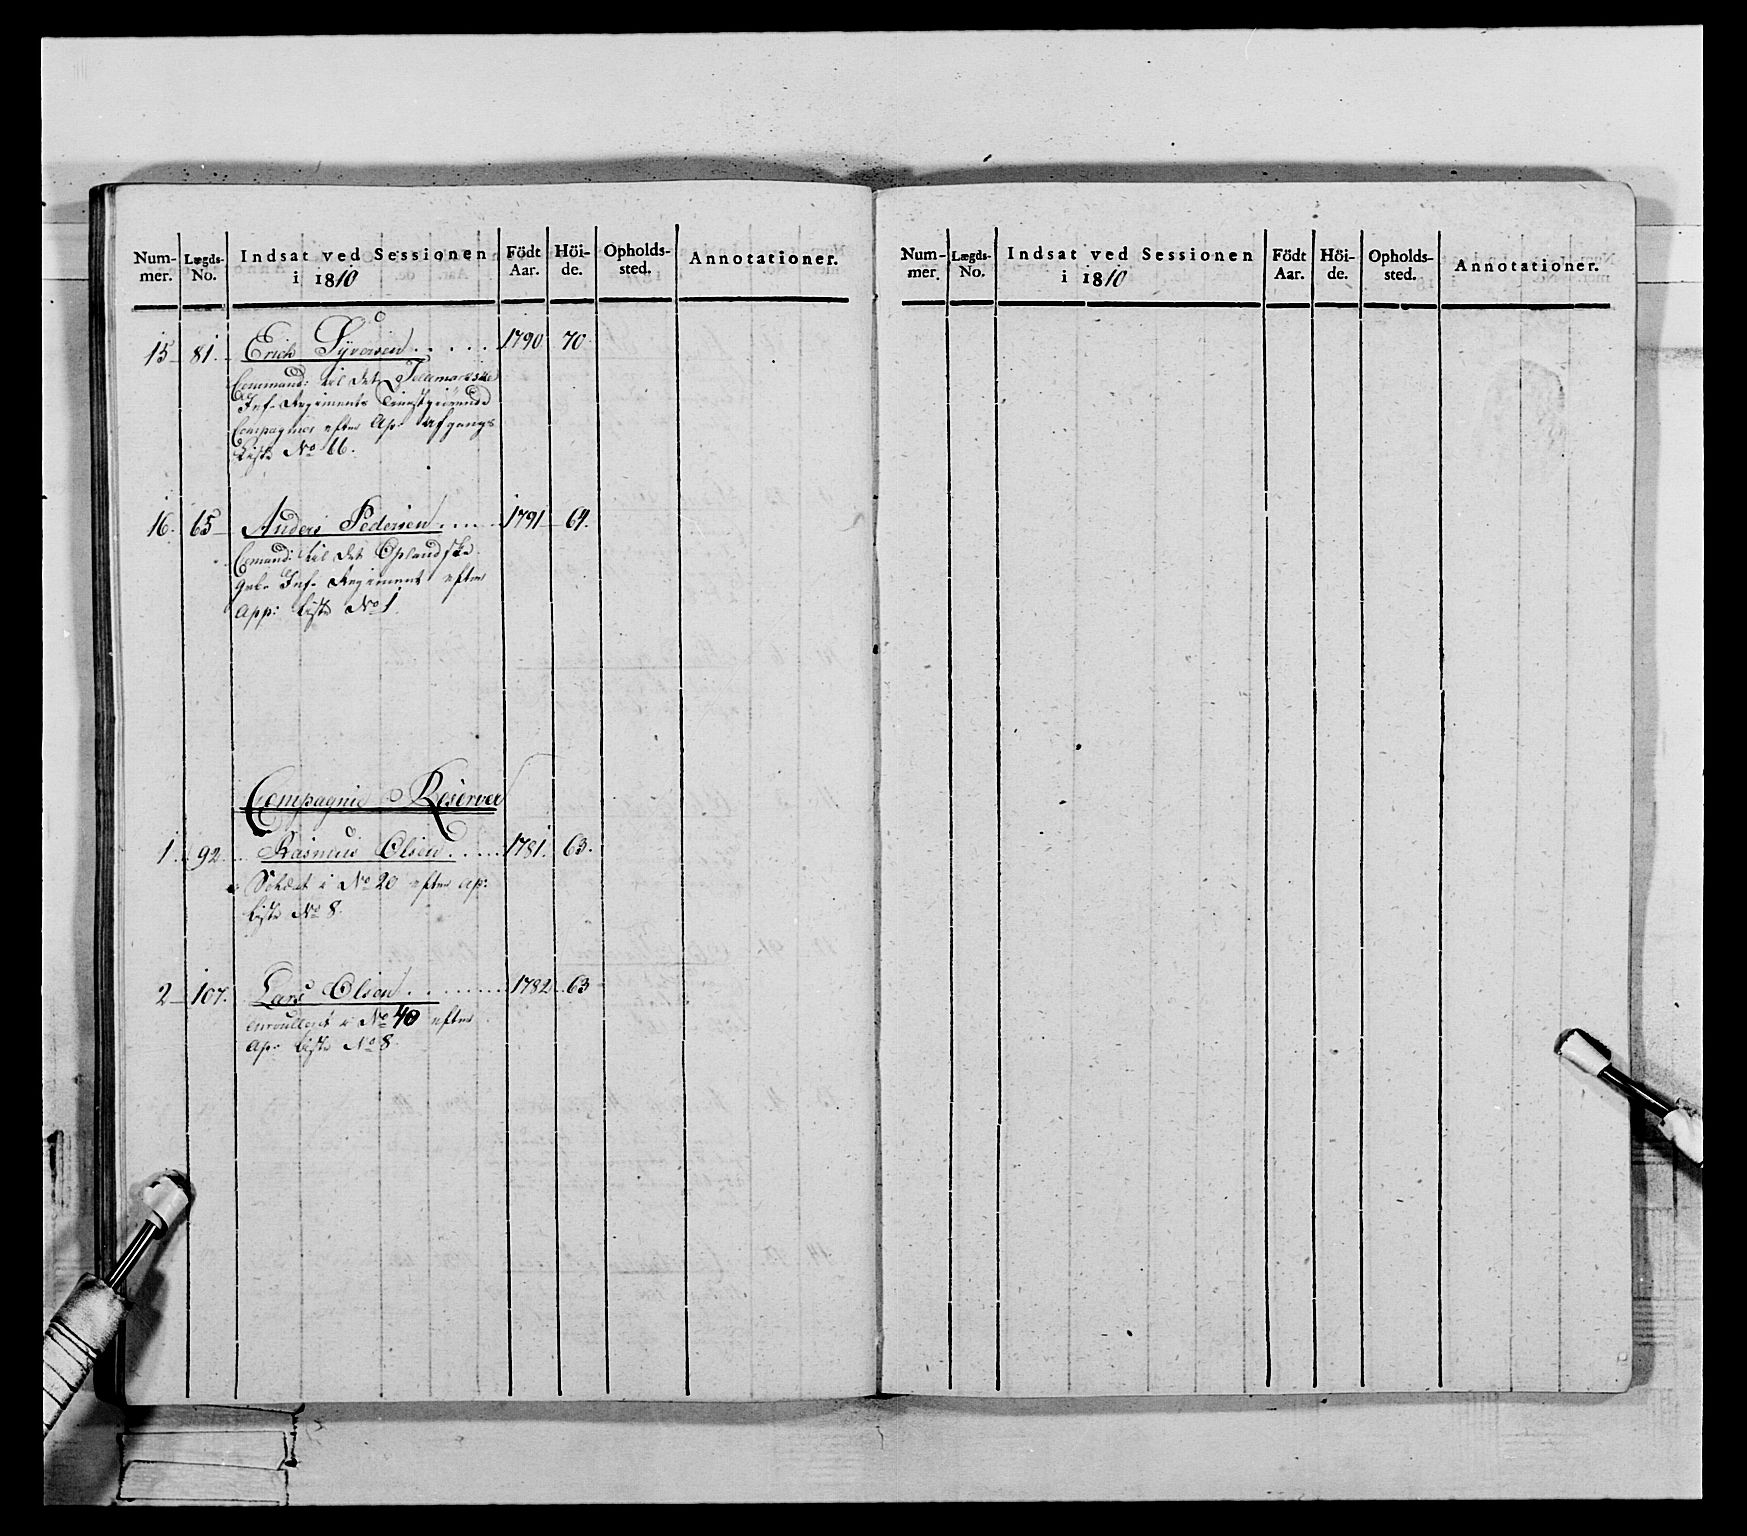 Num-mer. Lægds-No. Indsat ved Sessionen i 1810 Födt Aar. Höi-de. Opholds-sted. Annotationer.
15 81. Erich Syversen . . . . . 1790 70
Command: til det Tellemarkske
Inf. Regiments Tienstgiörende
Compagnier efter Ap: Afgangs
Liste No 66.
16. 65 Anders Pedersen . . . . . 1791 64.
Comand: til det Oplandske
Inf. Regiment efter
App: Liste No 1.
Compagnie Reserver
1. 92. Rasmus Olsen . . . . . 1781. 63.
Soldat i No 20 efter Ap:
Liste No 8.
2 107. Lars Olsen . . . . . . . . 1782 63
Enroulleret i No 40 efter
Ap: Liste No 8.
Num-mer. Lægds-No. Indsat ved Sessionen i 1810 Födt Aar. Höi-de. Opholds-sted. Annotationer.